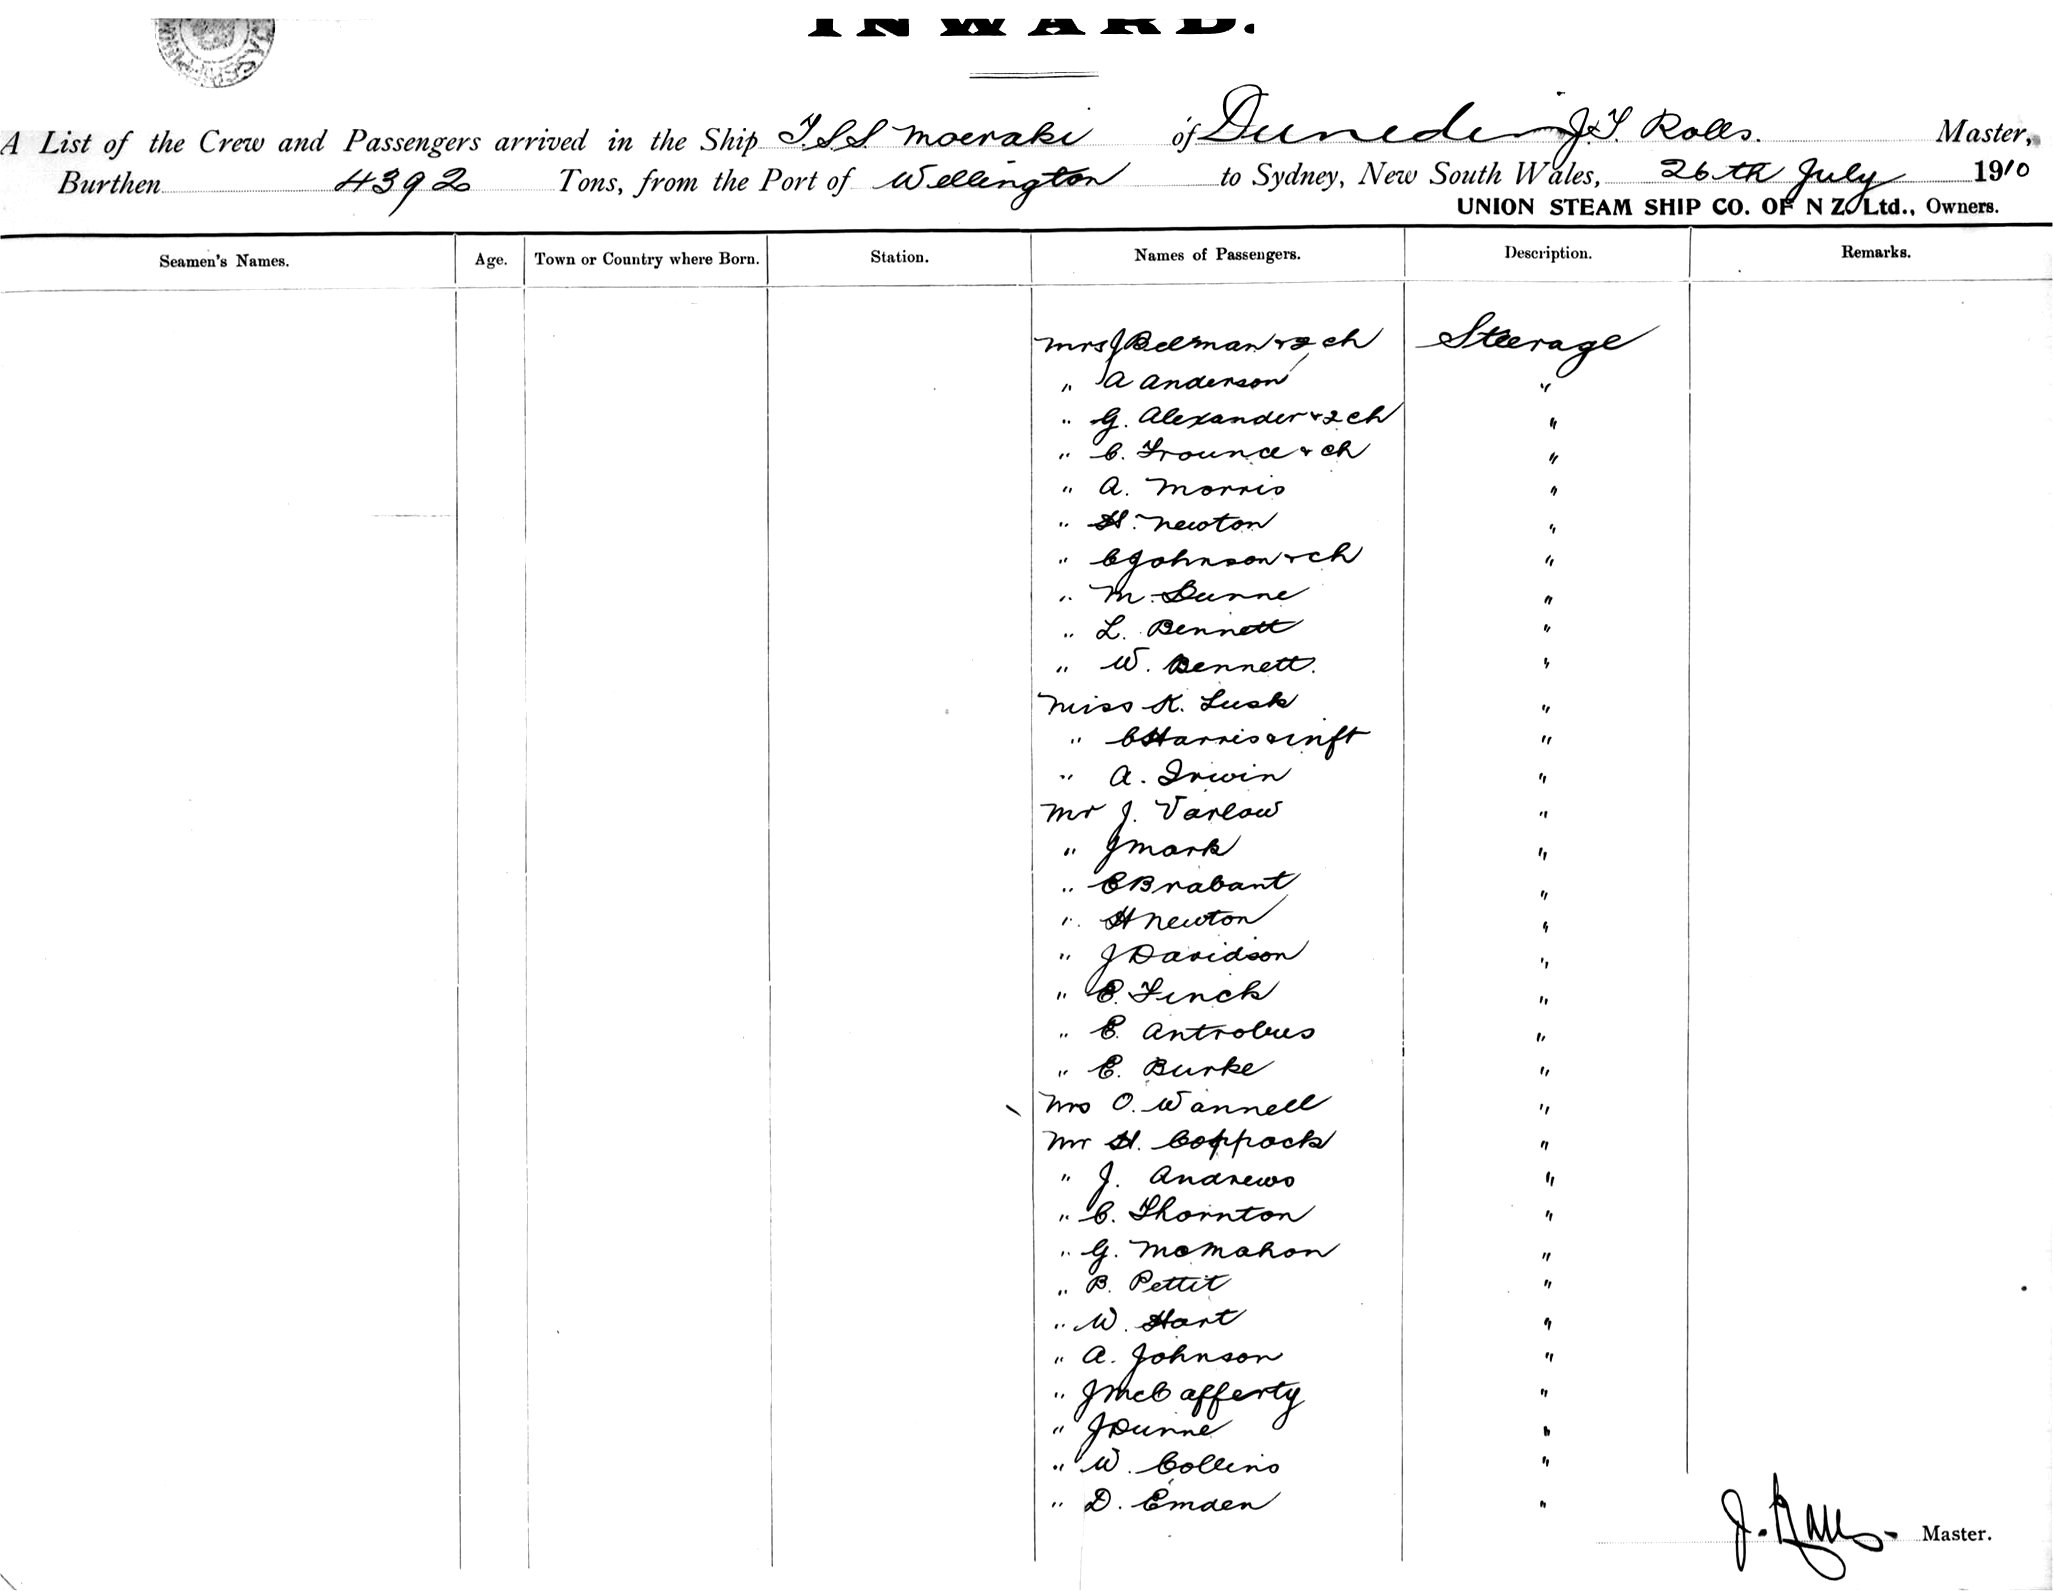 INWARD.
A List of the Crew and Passengers arrived in the Ship T.S.S. Moeraki of Dunedin J.T. Rolls. Master,
Burthen 4392 Tons, from the Port of Wellington to Sydney, New South Wales, 26th July 1910
UNION STEAM SHIP CO. OF N Z Ltd., Owners.
Seamen's Names. Age. Town or Country where Born. Station. Names of Passengers. Description. Remarks.
Mrs J Belman & 2 ch Steerage
" A Anderson "
" G. Alexander & 2 ch "
" C. Trounce & ch "
" A. Morris "
" H. Newton "
" C Johnson & ch "
" M. Dunne "
" L. Bennett "
" W. Bennett. "
Miss K. Lusk "
" C Harris & inft "
" A. Irwin "
Mr J. Varlow "
" J Mark "
" C Brabant "
" H Newton "
" J Davidson "
" E. Finck "
" E. Antrobus "
" E. Burke "
Mrs O. Wannell "
Mr H. Coppock "
" J. Andrews "
" C. Thornton "
" G. McMahon "
" B. Pettit "
" W. Hart "
" A. Johnson "
" J McCafferty "
" J Dunne "
" W. Collins "
" D. Emden "
J. Rolls. Master.